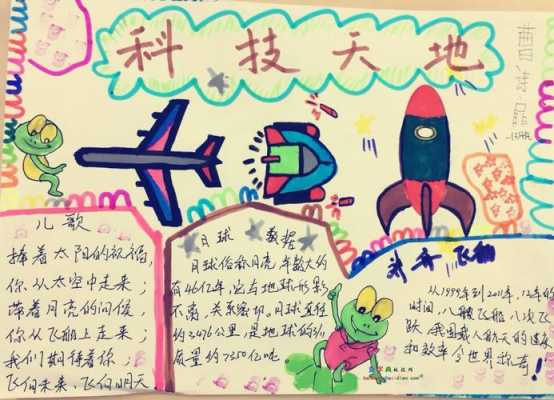 科技天地
儿歌
捧着太阳的祝福,
你从太空中走来;
带着月亮的问候,
你从飞船上走来;
我们期待着你;
飞向未来、飞向明天
月球 数据
月球俗称月亮,年数大约
有46亿年,它与地球形影
不离,关系密切,月球直径
约3476公里,是地球的3/11
质量约7350亿吨
神舟飞船
从1999年到2011年,12年的
时间,八艘飞船,八次飞
跃,我国载人航天的速度
和效率令世界称奇!